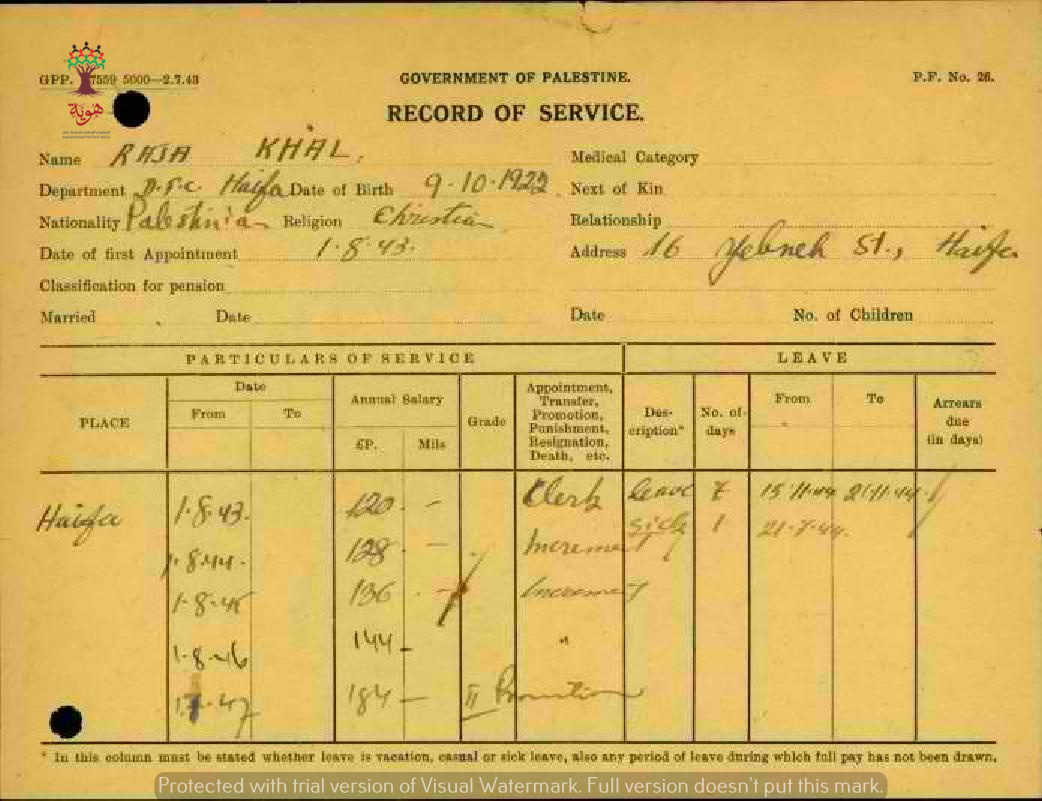 GPP. 7559 5000—2.7.43
GOVERNMENT OF PALESTINE.
P.F. No. 26.
هوية
RECORD OF SERVICE.
Name RAJA KHAL,
Medical Category
Department D.S.C. Haifa Date of Birth 9-10-1922
Next of Kin
Nationality Palestinian Religion Christian
Relationship
Date of first Appointment 1-8-43.
Address 16 Yebneh St., Haifa
Classification for pension
Married Date
Date No. of Children
PARTICULARS OF SERVICE
LEAVE
PLACE
Date
From To
Annual Salary
£P. Mils
Grade
Appointment,
Transfer,
Promotion,
Punishment,
Resignation,
Death, etc.
Des-
cription*
No. of
days
From
To
Arrears
due
(in days)
Haifa 1-8-43. 120 - Clerk leave 7 15-11-44 21-11-44.
sick 1 21-7-44.
1-8-44. 128. - Increment
1-8-45 136. - Increment
1-8-46 144 - "
47 184 - II Promotion
* In this column must be stated whether leave is vacation, casual or sick leave, also any period of leave during which full pay has not been drawn.
Protected with trial version of Visual Watermark. Full version doesn't put this mark.